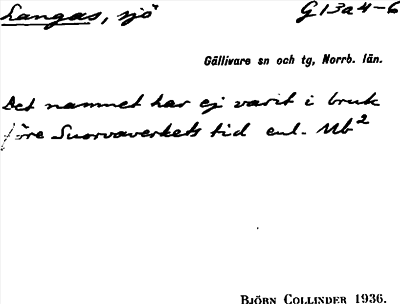 Langas, sjö G13a4-6
Gällivare sn och tg, Norrb. län.
Det namnet har ej varit i bruk
före Suorvaverkets tid enl. Mb²
BJÖRN COLLINDER 1936.